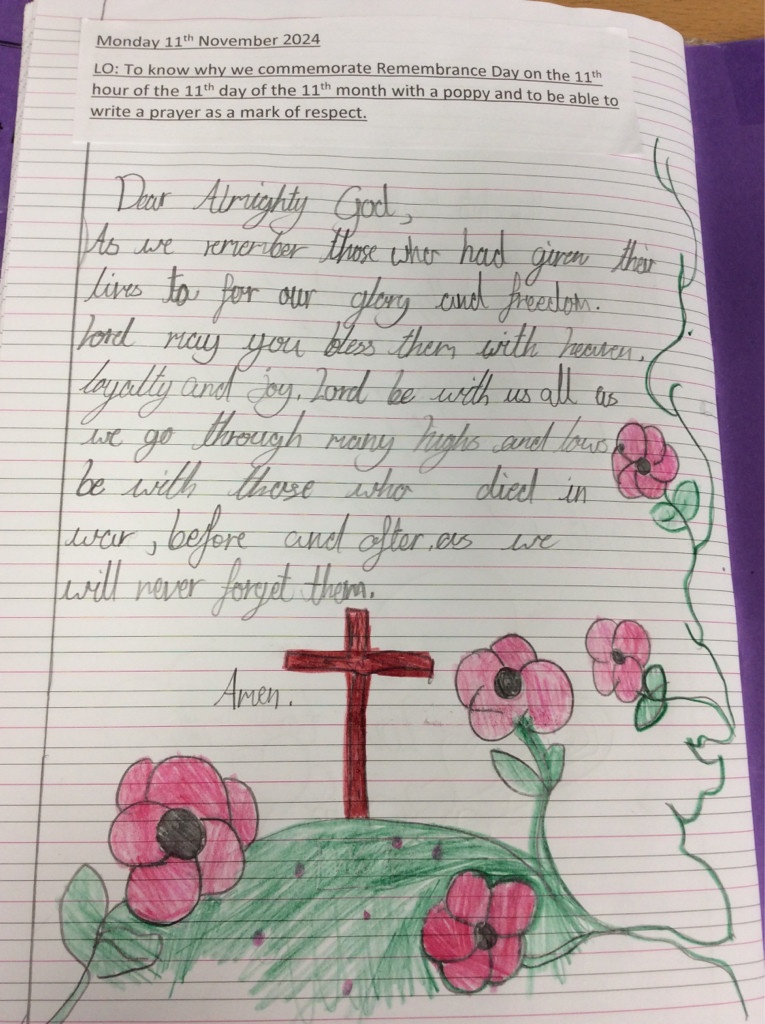 Monday 11th November 2024
LO: To know why we commemorate Remembrance Day on the 11th
hour of the 11th day of the 11th month with a poppy and to be able to
write a prayer as a mark of respect.
Dear Almighty God,
As we remember those who had given their
lives to for our glory and freedom.
Lord may you bless them with heaven,
loyalty and joy. Lord be with us all as
we go through many highs and lows
be with those who died in
war, before and after, as we
will never forget them.
Amen.